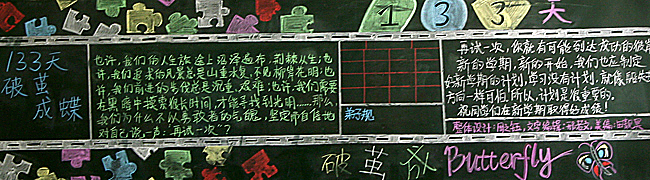 133天
133天
破茧
成蝶
也许，我们的人生旅途上沼泽遍布，荆棘丛生；也
许，我们追求的风景总是山重水复，不见柳暗花明；也
许，我们前进的步伐总是沉重、艰难；也许，我们需要
在黑暗中摸索很长时间，才能寻找到光明……那么，
我们为什么不以勇敢者的气魄，坚定而自信地
对自己说一声："再试一次"？
弟子规
再试一次，你就有可能到达成功的彼岸
新的学期，新的开始，我们也应制定
好新学期的计划，学习没有计划，就像船失去
方向一样可怕，所以，计划是很重要的，
祝同学们在新学期取得好成绩！
整体设计：
破茧成Butterfly